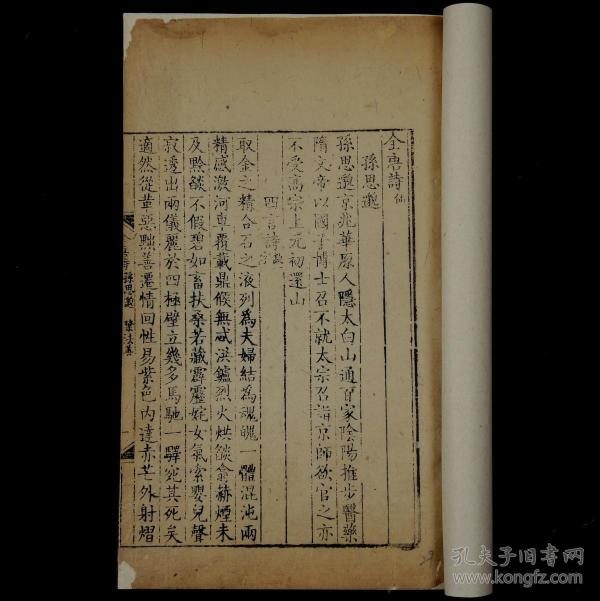 全唐詩 仙
孫思邈
孫思邈京兆華原人隱太白山通百家陰陽推步醫藥
隋文帝以國子博士召不就太宗召詣京師欲官之亦
不受高宗上元初還山
四言詩
取金之精合石之液列爲夫婦結爲魂魄一體混沌兩
精感激河車覆載鼎候無忒洪鑪烈火烘燄翕赫煙未
及黔燄不假碧如畜扶桑若藏霹靂姹女氣索嬰兒聲
寂透出兩儀麗於四極壁立幾多馬馳一驛宛其死矣
適然從革惡黜善遷情回性易紫色內達赤芒外射熠
孫思邈 葉法善
一
孔夫子旧书网
www.kongfz.com